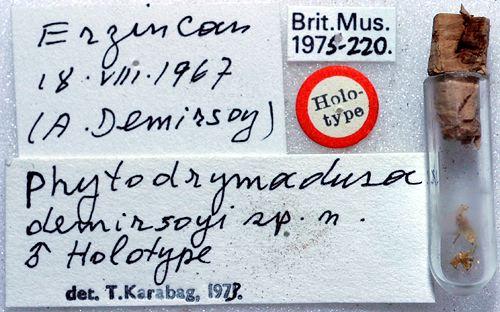 Erzincan
18.VIII.1967
(A. Demirsoy)
Brit.Mus.
1975-220.
Holo-
type
Phytodrymadusa
demirsoyi sp. n.
♂ Holotype
det. T.Karabag, 1973.